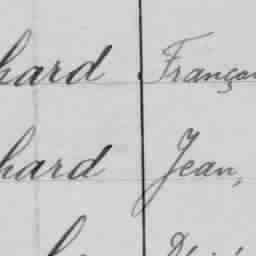 hard Françoi
hard Jean,